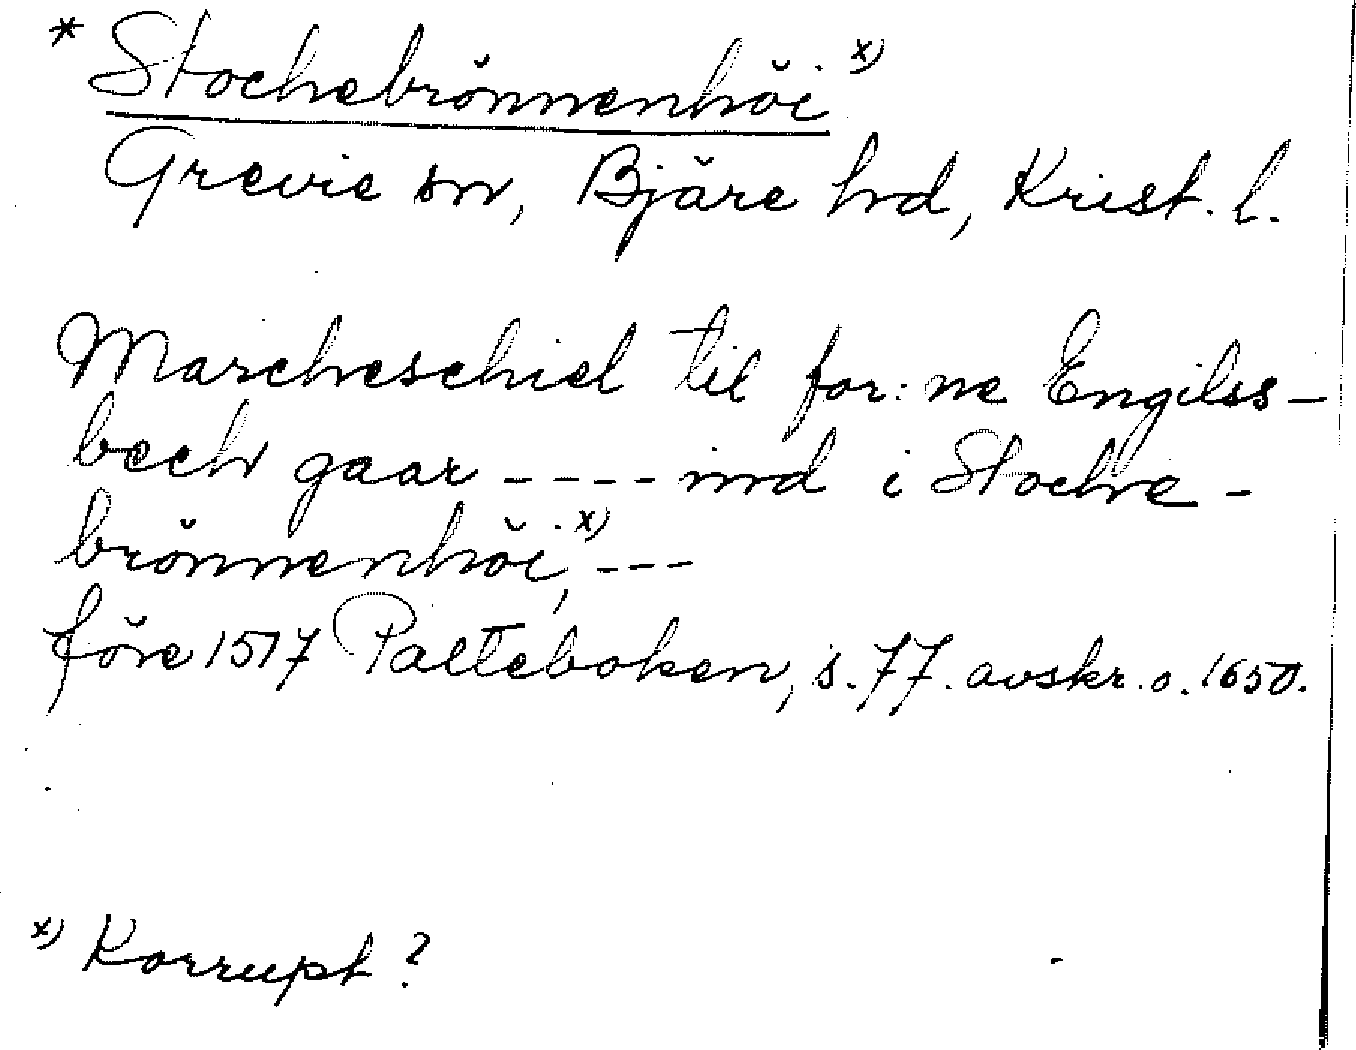 * Stochebrönnenhöi x)
Grevie sn, Bjäre hd, Krist. l.
Marcheschiel til for:ne Engilss-
bech gaar ---- ind i Stoche-
brönnenhöi, x) ---
före 1517 Palteboken, s. 77. avskr. o. 1650.
x) Korrupt?